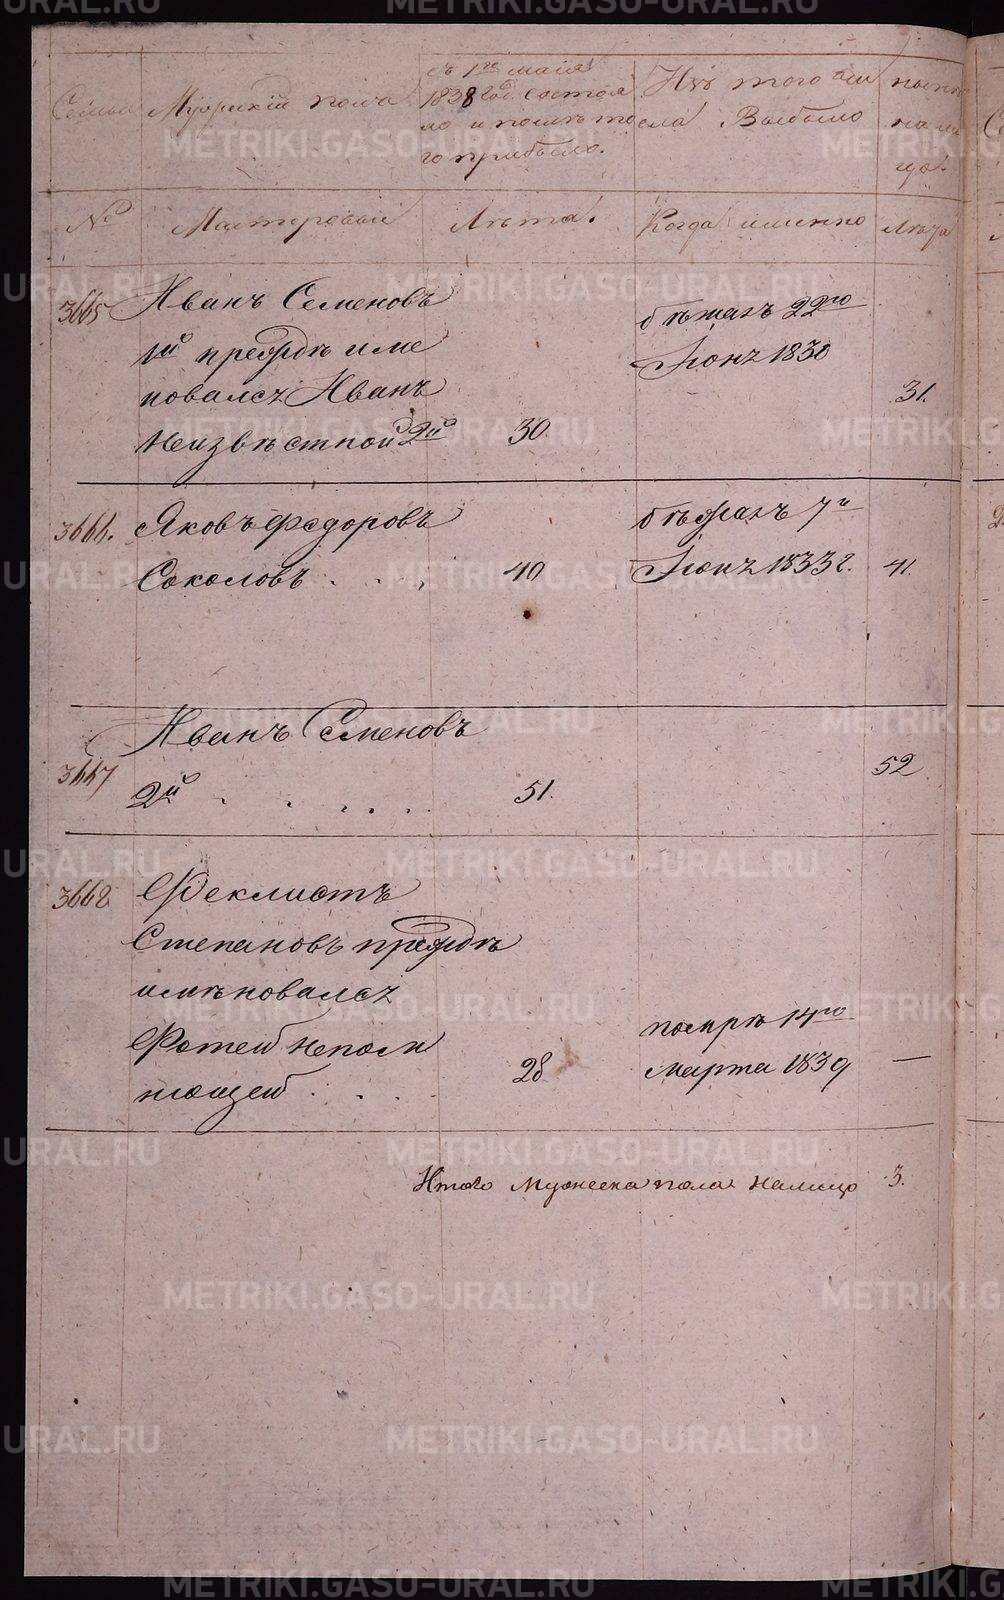 Семьи
Мужский полъ
съ 1го маія
1838 год. состоя
ло и послѣ то
го прибыло.
Изъ того чи
сла Выбыло
нынѣ
на ли
цо.
№
Мастеровые
Лѣта.
Когда именно
Лѣта
3665
Иванъ Семеновъ
1й преждѣ име
новался Иванъ
Неизвѣстной 2й
30.
бѣжалъ 22го
Іюня 1830
31.
3666.
Яковъ Федоровъ
Соколовъ . . .
40
бѣжалъ 7го
Іюня 1833г.
41.
3667
Иванъ Семеновъ
2й . . . . . .
51.
52
3668
Феклистъ
Степановъ преждѣ
имѣновался
Фотей непомн
нющей . . . .
28
помрѣ 14го
марта 1839
—
Итого Мужеска пола налицо 3.
METRIKI.GASO-URAL.RU